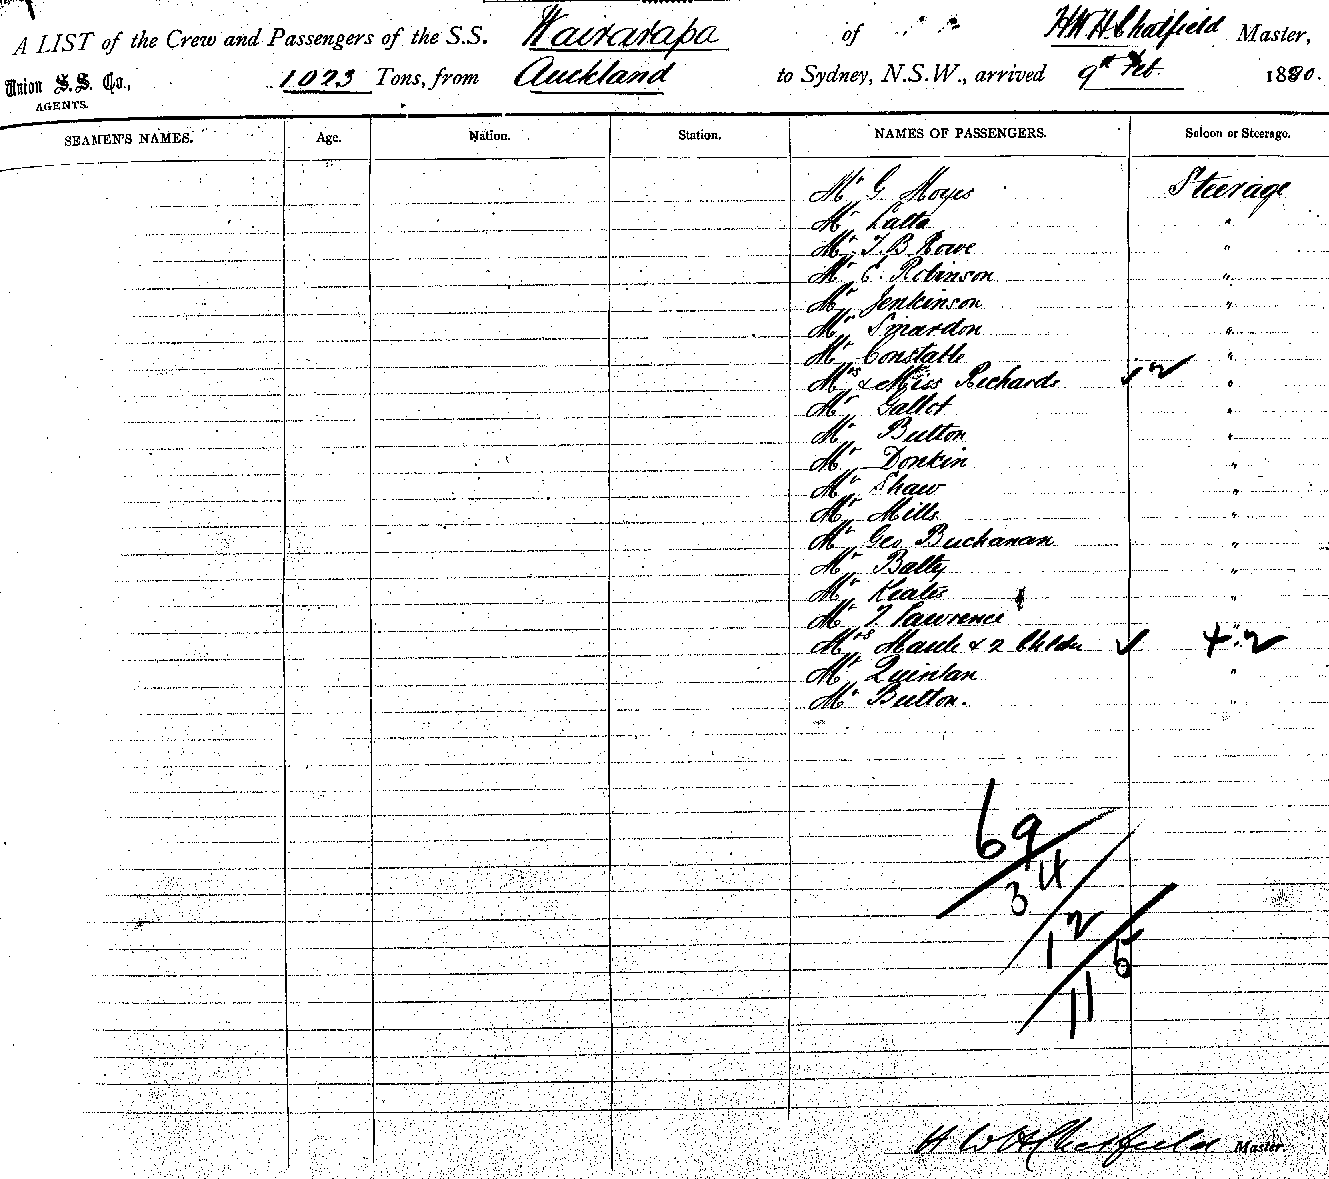 A LIST of the Crew and Passengers of the S.S. Wairarapa of " " H W H Chatfield Master,
Union S.S. Co., AGENTS. 1023 Tons, from Auckland to Sydney, N.S.W., arrived 9th Feb. 1890.
SEAMEN'S NAMES. Age. Nation. Station. NAMES OF PASSENGERS. Saloon or Steerage.
Mr G. Moyes Steerage
Mr Latta "
Mr T. B. Rowe "
Mr E. Robinson "
Mr Jenkinson "
Mr Smardon "
Mr Constable "
Mrs & Miss Richards ✓ 2 "
Mr Gallot "
Mr Button "
Mr Donkin "
Mr Shaw "
Mr Mills "
Mr Geo Buchanan "
Mr Batty "
Mr "
Mr T Lawrence
Mrs & 2 Childn ✓ + " 2
Mr Quinlan "
Mr Button. "
69
3 4
1 2
11 5
H W H Chatfield Master.